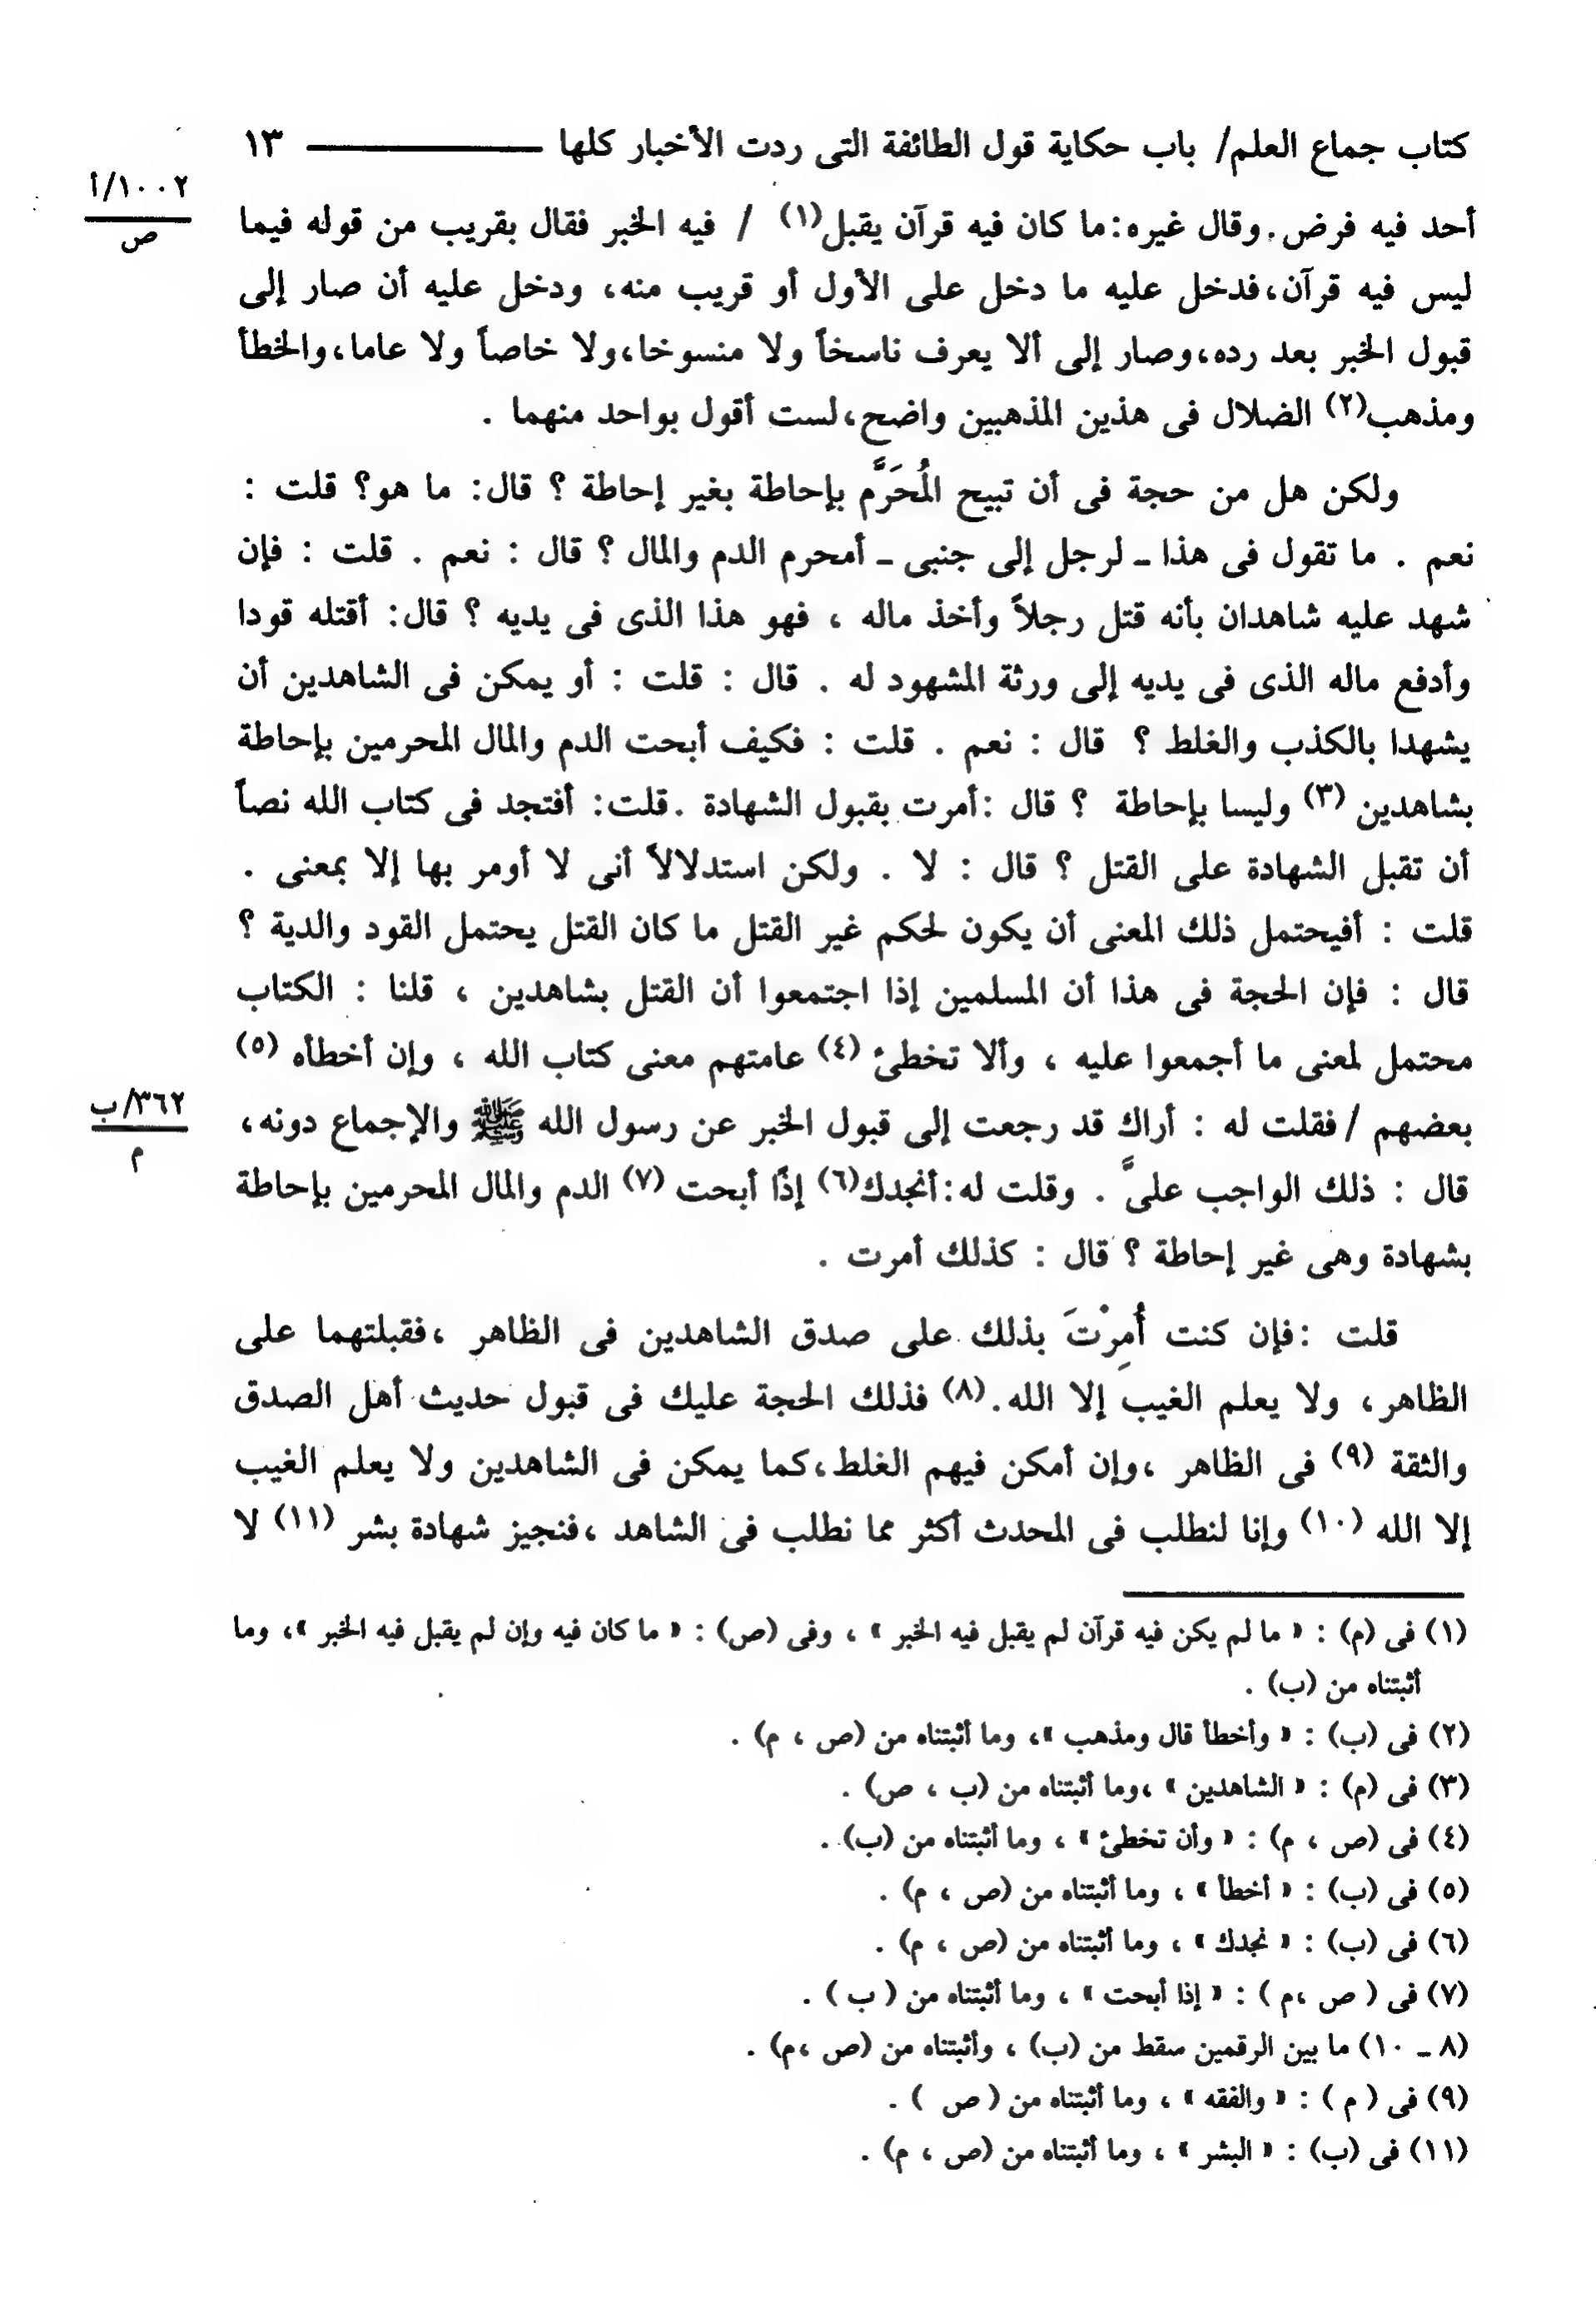 كتاب جماع العلم/ باب حكاية قول الطائفة التى ردت الأخبار كلها ١٣
١٠٠٢/أ
ص
أحد فيه فرض. وقال غيره: ما كان فيه قرآن يقبل(١) / فيه الخبر فقال بقريب من قوله فيما
ليس فيه قرآن، فدخل عليه ما دخل على الأول أو قريب منه، ودخل عليه أن صار إلى
قبول الخبر بعد رده، وصار إلى ألا يعرف ناسخاً ولا منسوخا، ولا خاصاً ولا عاما، والخطأ
ومذهب(٢) الضلال فى هذين المذهبين واضح، لست أقول بواحد منهما .
ولكن هل من حجة فى أن تبيح المُحَرَّم بإحاطة بغير إحاطة ؟ قال: ما هو؟ قلت :
نعم . ما تقول فى هذا ـ لرجل إلى جنبى ـ أمحرم الدم والمال ؟ قال : نعم . قلت : فإن
شهد عليه شاهدان بأنه قتل رجلاً وأخذ ماله ، فهو هذا الذى فى يديه ؟ قال: أقتله قودا
وأدفع ماله الذى فى يديه إلى ورثة المشهود له . قال : قلت : أو يمكن فى الشاهدين أن
يشهدا بالكذب والغلط ؟ قال : نعم . قلت : فكيف أبحت الدم والمال المحرمين بإحاطة
بشاهدين (٣) وليسا بإحاطة ؟ قال :أمرت بقبول الشهادة .قلت: أفتجد فى كتاب الله نصاً
أن تقبل الشهادة على القتل ؟ قال : لا . ولكن استدلالاً أنى لا أومر بها إلا بمعنى .
قلت : أفيحتمل ذلك المعنى أن يكون لحكم غير القتل ما كان القتل يحتمل القود والدية ؟
قال : فإن الحجة فى هذا أن المسلمين إذا اجتمعوا أن القتل بشاهدين ، قلنا : الكتاب
محتمل لمعنى ما أجمعوا عليه ، وألا تخطئ (٤) عامتهم معنى كتاب الله ، وإن أخطأه (٥)
٣٦٢/ب
م
بعضهم /فقلت له : أراك قد رجعت إلى قبول الخبر عن رسول الله ﷺ والإجماع دونه،
قال : ذلك الواجب علىَّ . وقلت له:أنجدك(٦) إذًا أبحت (٧) الدم والمال المحرمين بإحاطة
بشهادة وهى غير إحاطة ؟ قال : كذلك أمرت .
قلت :فإن كنت أُمِرْتَ بذلك على صدق الشاهدين فى الظاهر ،فقبلتهما على
الظاهر، ولا يعلم الغيب إلا الله.(٨) فذلك الحجة عليك فى قبول حديث أهل الصدق
والثقة (٩) فى الظاهر ،وإن أمكن فيهم الغلط،كما يمكن فى الشاهدين ولا يعلم الغيب
إلا الله (١٠) وإنا لنطلب فى المحدث أكثر مما نطلب فى الشاهد ،فنجيز شهادة بشر (١١) لا
(١) فى (م) : « ما لم يكن فيه قرآن لم يقبل فيه الخبر » ، وفى (ص) : « ما كان فيه وإن لم يقبل فيه الخبر »، وما
أثبتناه من (ب) .
(٢) فى (ب) : « وأخطأ قال ومذهب »، وما أثبتناه من (ص ، م) .
(٣) فى (م) : « الشاهدين » ،وما أثبتناه من (ب ، ص) .
(٤) فى (ص ، م) : « وأن تخطئ » ، وما أثبتناه من (ب) .
(٥) فى (ب) : « أخطأ » ، وما أثبتناه من (ص ، م) .
(٦) فى (ب) : « نجدك » ، وما أثبتناه من (ص ، م) .
(٧) فى ( ص ،م ) : « إذا أبحت » ، وما أثبتناه من ( ب ) .
(٨ ـ ١٠) ما بين الرقمين سقط من (ب) ، وأثبتناه من (ص ،م) .
(٩) فى ( م ) : « والفقه » ، وما أثبتناه من ( ص ) .
(١١) فى (ب) : « البشر » ، وما أثبتناه من (ص ، م) .